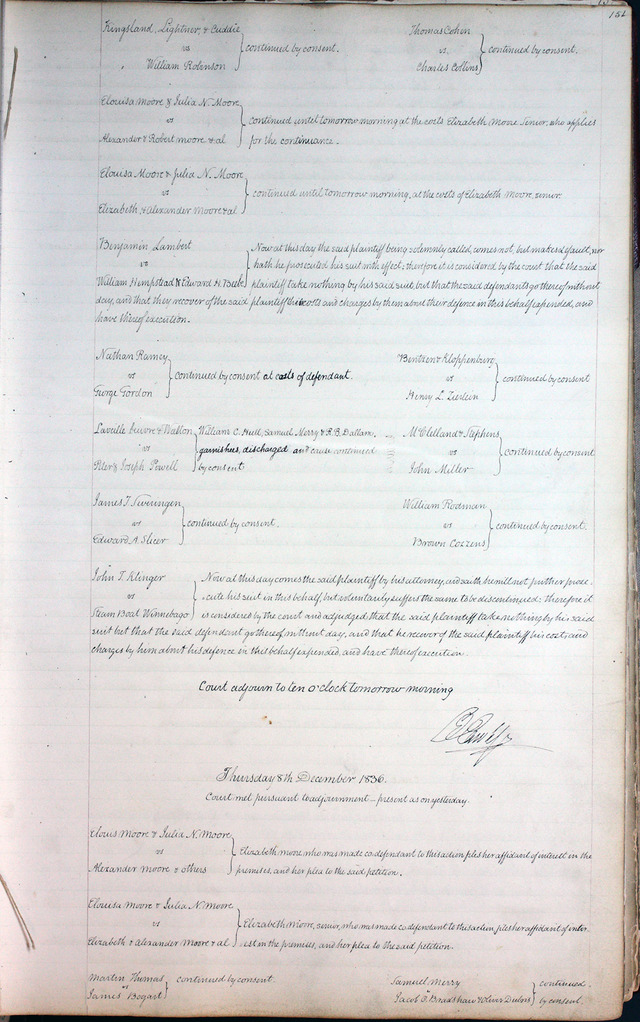 182
Kingsland, Lightner, & Cuddie
vs
William Robinson
continued by consent.
Thomas Cohen
vs
Charles Collins
continued by consent.
Elouisa Moore & Julia N. Moore
vs
Alexander & Robert Moore & al
continued until tomorrow morning at the costs Elizabeth Moore Senior, who applies
for the continuance.
Elouisa Moore & Julia N. Moore
vs
Elizabeth, & Alexander Moore & al
continued until tomorrow morning, at the costs of Elizabeth Moore, senior.
Benjamin Lambert
vs
William Hempstead & Edward H. Beebe
Now at this day the said plaintiff being solemnly called, comes not, but makes default, nor
hath he prosecuted his suit with effect; therefore it is considered by the court that the said
plaintiff take nothing by his said suit, but that the said defendants go thereof without
day, and that they recover of the said plaintiff their costs and charges by them about their defence in this behalf expended, and
have thereof execution.
Nathan Ramey
vs
George Gordon
continued by consent at costs of defendant.
Bintzen & Kloppenburg
vs
Henry L. Zierlein
continued by consent
vs
Peter & Joseph Powell
William C. Hull, Samuel Merry & R. B. Dallam,
garnishees, discharged and cause continued
by consent
McClelland & Stephens
vs
John Miller
continued by consent
James T. Swearingen
vs
Edward A. Slicer
continued by consent.
William Rodman
vs
Brown Cozzens
continued by consent.
John T. Klinger
vs
Steam Boat Winnebago
Now at this day comes the said plaintiff by his attorney, and saith he will not further prose-
cute his suit in this behalf, but voluntarily suffers the same to be discontinued: therefore it
is considered by the court and adjudged that the said plaintiff take nothing by his said
suit but that the said defendant go thereof without day, and that he recover of the said plaintiff his costs and
charges by him about his defence in this behalf expended, and have thereof execution.
Court adjourn to ten o'clock tomorrow morning
Thursday 8th December 1836.
Court met pursuant to adjournment - present as on yesterday.
Elouis Moore & Julia N. Moore
vs
Alexander Moore & others
Elizabeth Moore, who was made codefendant to this action files her affidavit of interest in the
premises, and her plea to the said petition.
Elouisa Moore & Julia N. Moore
vs
Elizabeth & Alexander Moore & al
Elizabeth Moore, senior, who was made codefendant to this action, files her affidavit of inter-
est in the premises, and her plea to the said petition.
Martin Thomas
vs
James Bogart
continued by consent.
Samuel Merry
vs
Jacob O. Bradshaw & Oliver Dubois
continued
by consent.